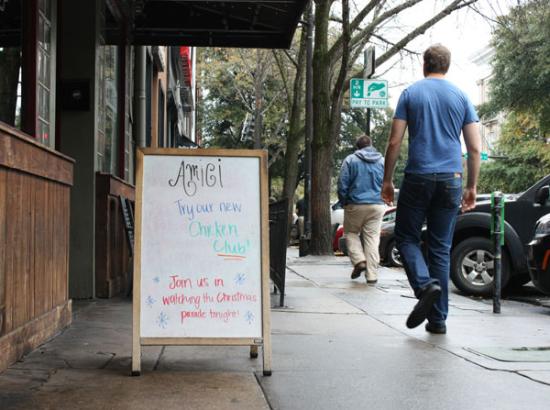 Amici
Try our new
Chicken
Club!
Join us in
watching the Christmas
parade tonight!
PAY TO PARK